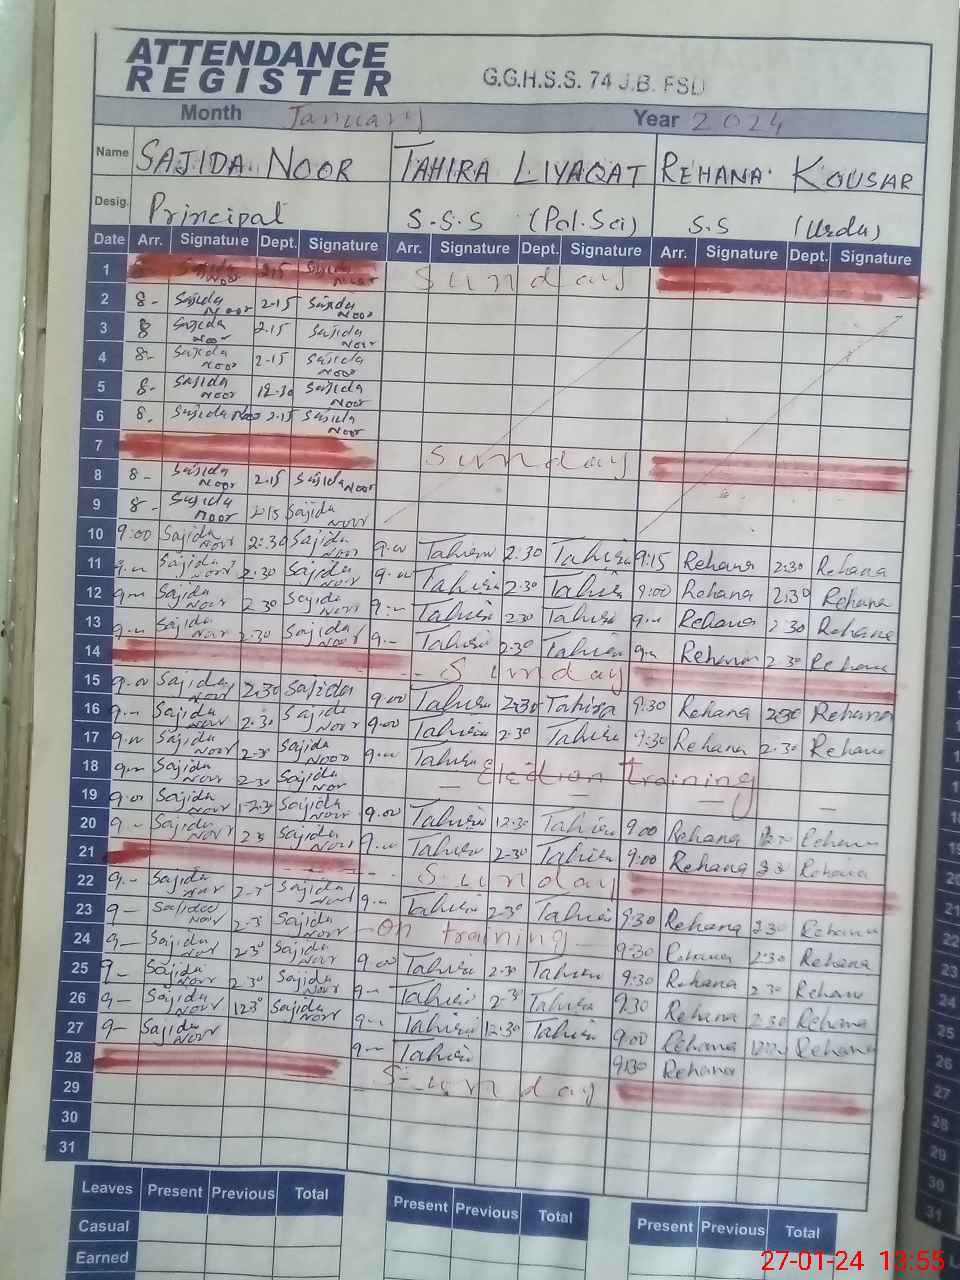 ATTENDANCE
REGISTER
G.G.H.S.S. 74 J.B. FSD
Month January Year 2024
Name SAJIDA NOOR TAHIRA LIYAQAT REHANA KOUSAR
Desig. Principal S.S.S (Pol.Sci) S.S (Urdu)
Date Arr. Signature Dept. Signature Arr. Signature Dept. Signature Arr. Signature Dept. Signature
1 8- Sajida Noor 2.15 Sajida Noor Sunday
2 8- Sajida Noor 2.15 Sajida Noor
3 8 Sajida Noor 2.15 Sajida Noor
4 8- Sajida Noor 2.15 Sajida Noor
5 8- Sajida Noor 12.30 Sajida Noor
6 8. Sajida Noor 2.15 Sajida Noor
7 Sunday
8 8- Sajida Noor 2.15 Sajida Noor
9 8- Sajida Noor 2.15 Sajida Noor
10 9:00 Sajida Noor 2:30 Sajida Noor 9.00 Tahira 2:30 Tahira 9:15 Rehana 2:30 Rehana
11 Sajida Noor 2.30 Sajida Noor Tahira 2.30 Tahira 9:00 Rehana 2:30 Rehana
12 Sajida Noor 2.30 Sajida Noor Tahira 2.30 Tahira Rehana 2.30 Rehana
13 Sajida Noor 2.30 Sajida Noor 9.- Tahira 2.30 Tahira Rehana 2.30 Rehana
14 Sunday
15 9.00 Sajida Noor 2.30 Sajida 9.00 Tahira 2:30 Tahira 9:30 Rehana 2:30 Rehana
16 9.- Sajida Noor 2.30 Sajida Noor 9.00 Tahira 2.30 Tahira 9:30 Rehana 2.30 Rehana
17 Sajida Noor 2.30 Sajida Noor Tahira
18 Sajida Noor 2.30 Sajida Noor Election training
19 9.00 Sajida Noor 12.30 Sajida Noor 9.00 Tahira 12:30 Tahira 9:00 Rehana Rehana
20 9.- Sajida Noor Sajida Noor Tahira 2.30 Tahira 9:00 Rehana Rehana
21 Sunday
22 9.- Sajida Noor Sajida Noor Tahira 2.30 Tahira 9:30 Rehana 2.30 Rehana
23 9- Sajida Noor Sajida Noor On training 9:30 Rehana 2:30 Rehana
24 9- Sajida Noor 2.30 Sajida Noor 9.00 Tahira 2.30 Tahira 9:30 Rehana 2.30 Rehana
25 9- Sajida Noor 2.30 Sajida Noor Tahira 2.30 Tahira 9:30 Rehana 2.30 Rehana
26 9- Sajida Noor 12.30 Sajida Noor Tahira 12:30 Tahira 9:00 Rehana Rehana
27 9- Sajida Noor 9- Tahira 9:30 Rehana
28 Sunday
29
30
31
Leaves Present Previous Total Present Previous Total Present Previous Total
Casual
Earned
27-01-24 13:55